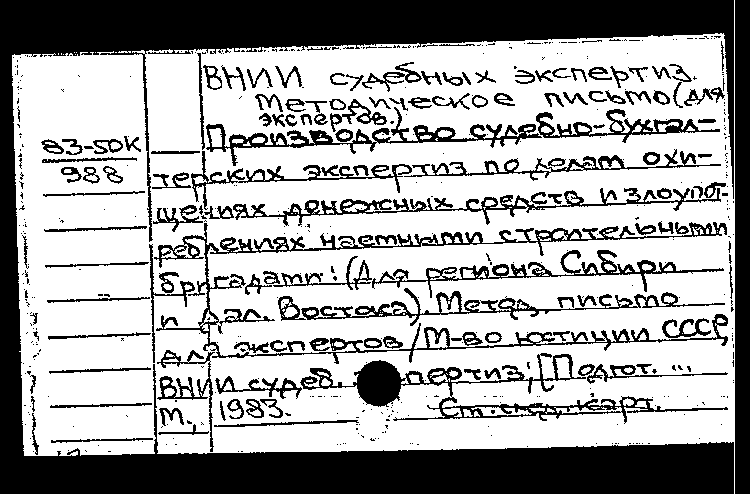 ВНИИ судебных экспертиз.
Методическое письмо (для
экспертов.)
83-50К
988
Производство судебно-бухгал-
терских экспертиз по делам о хи-
щениях денежных средств и злоупот-
реблениях наемными строительными
бригадами: (Для региона Сибири
и Дал. Востока). Метод. письмо
для экспертов / М-во юстиции СССР,
ВНИИ судеб. экспертиз; [Подгот. ...
М., 1983. См. след. карт.